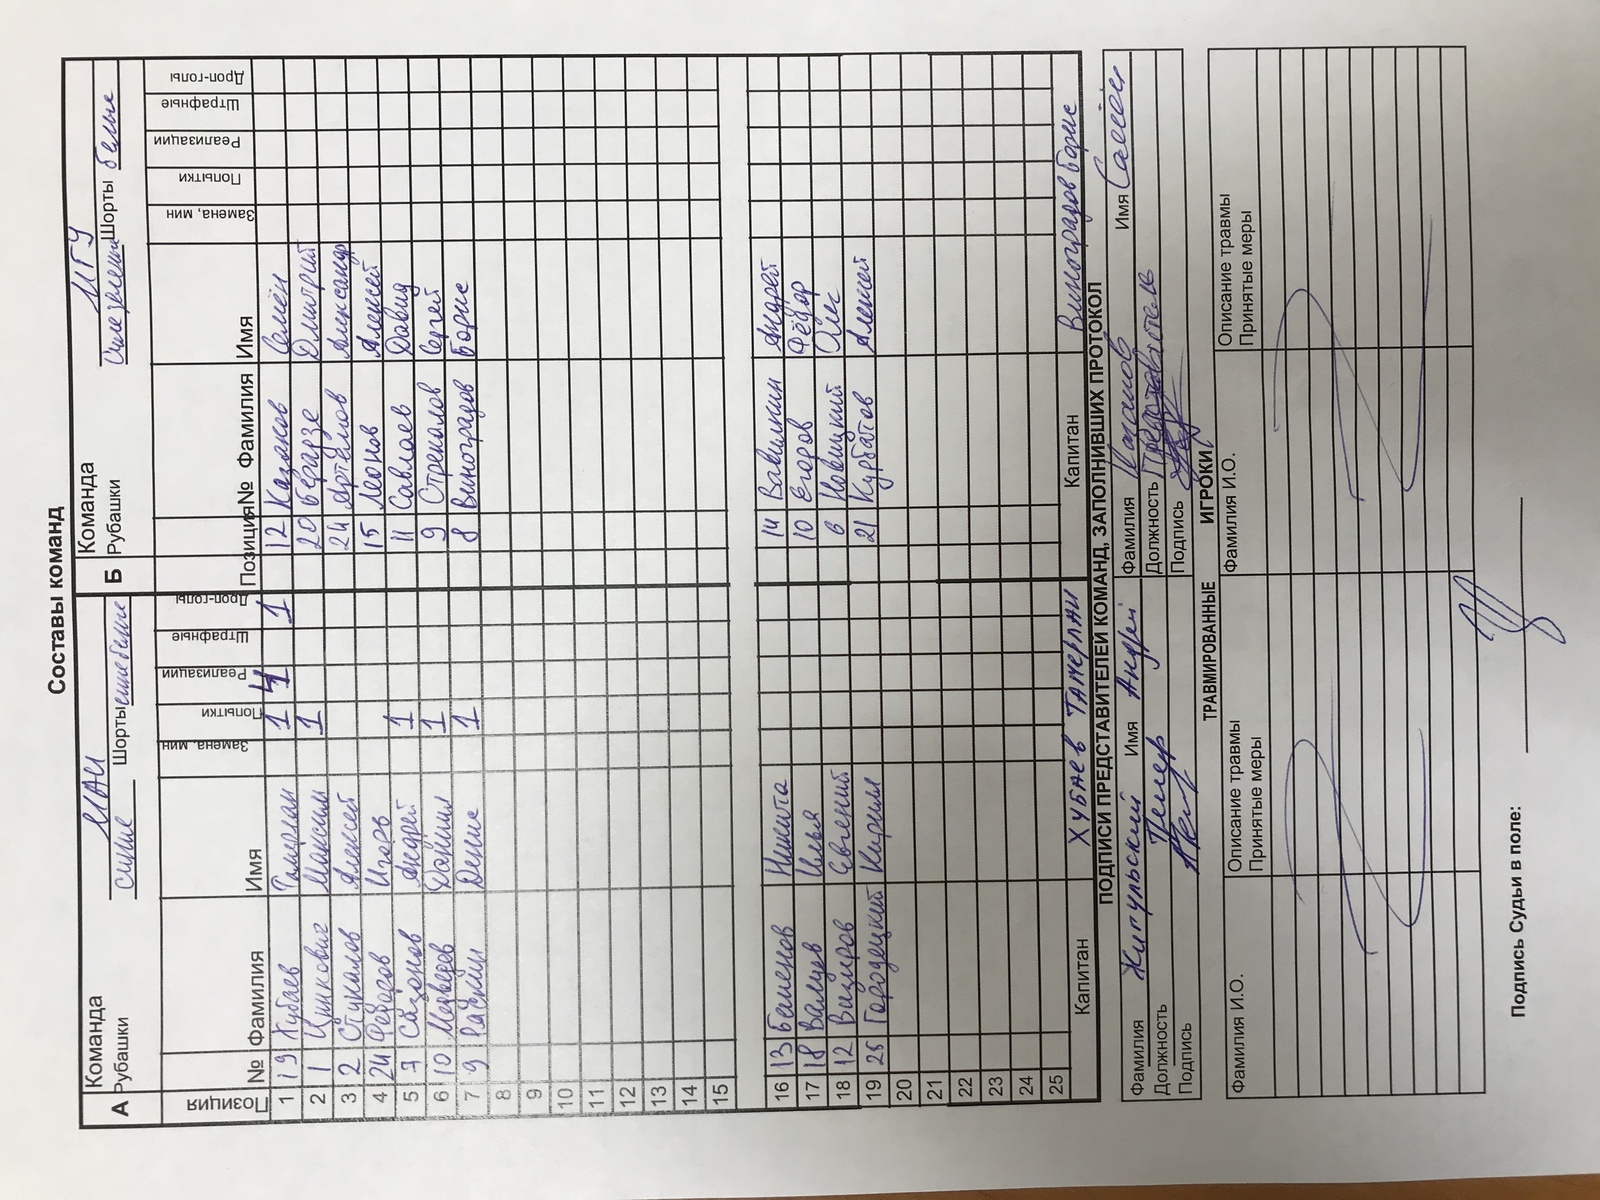 Составы команд
А Команда МАИ Б Команда МГУ
Рубашки синие Шорты синебелые Рубашки Шорты белые
Позиция № Фамилия Имя Замена, мин Попытки Реализации Штрафные Дроп-голы Позиция № Фамилия Имя Замена, мин Попытки Реализации Штрафные Дроп-голы
1 19 Хубаев Тамерлан 1 4 1 12 Казаков Семён
2 1 Цинкович Максим 1 20 Бегадзе Дмитрий
3 2 Стукалов Алексей 24 Артёмов Александр
4 24 Федоров Игорь 15 Леонов Алексей
5 7 Сазонов Андрей 1 11 Савлаев Давид
6 10 Медведев Даниил 1 9 Стрекалов Сергей
7 9 Рабжин Денис 1 8 Виноградов Борис
8
9
10
11
12
13
14
15
16 13 Беменов Никита 14 Вавилкин Андрей
17 18 Валуев Илья 10 Егоров Фёдор
18 12 Визиров Евгений 6 Новицкий Олег
19 25 Городецкий Кирилл 21 Курбатов Алексей
20
21
22
23
24
25
Капитан ХУБАЕВ ТАМЕРЛАН Капитан Виноградов Борис
ПОДПИСИ ПРЕДСТАВИТЕЛЕЙ КОМАНД, ЗАПОЛНИВШИХ ПРОТОКОЛ
Фамилия Житульский Имя Андрей Фамилия Казаков Имя Семён
Должность Тренер Должность Представитель
Подпись Подпись
ТРАВМИРОВАННЫЕ ИГРОКИ
Фамилия И.О. Описание травмы Фамилия И.О. Описание травмы
Принятые меры Принятые меры
Подпись Судьи в поле: